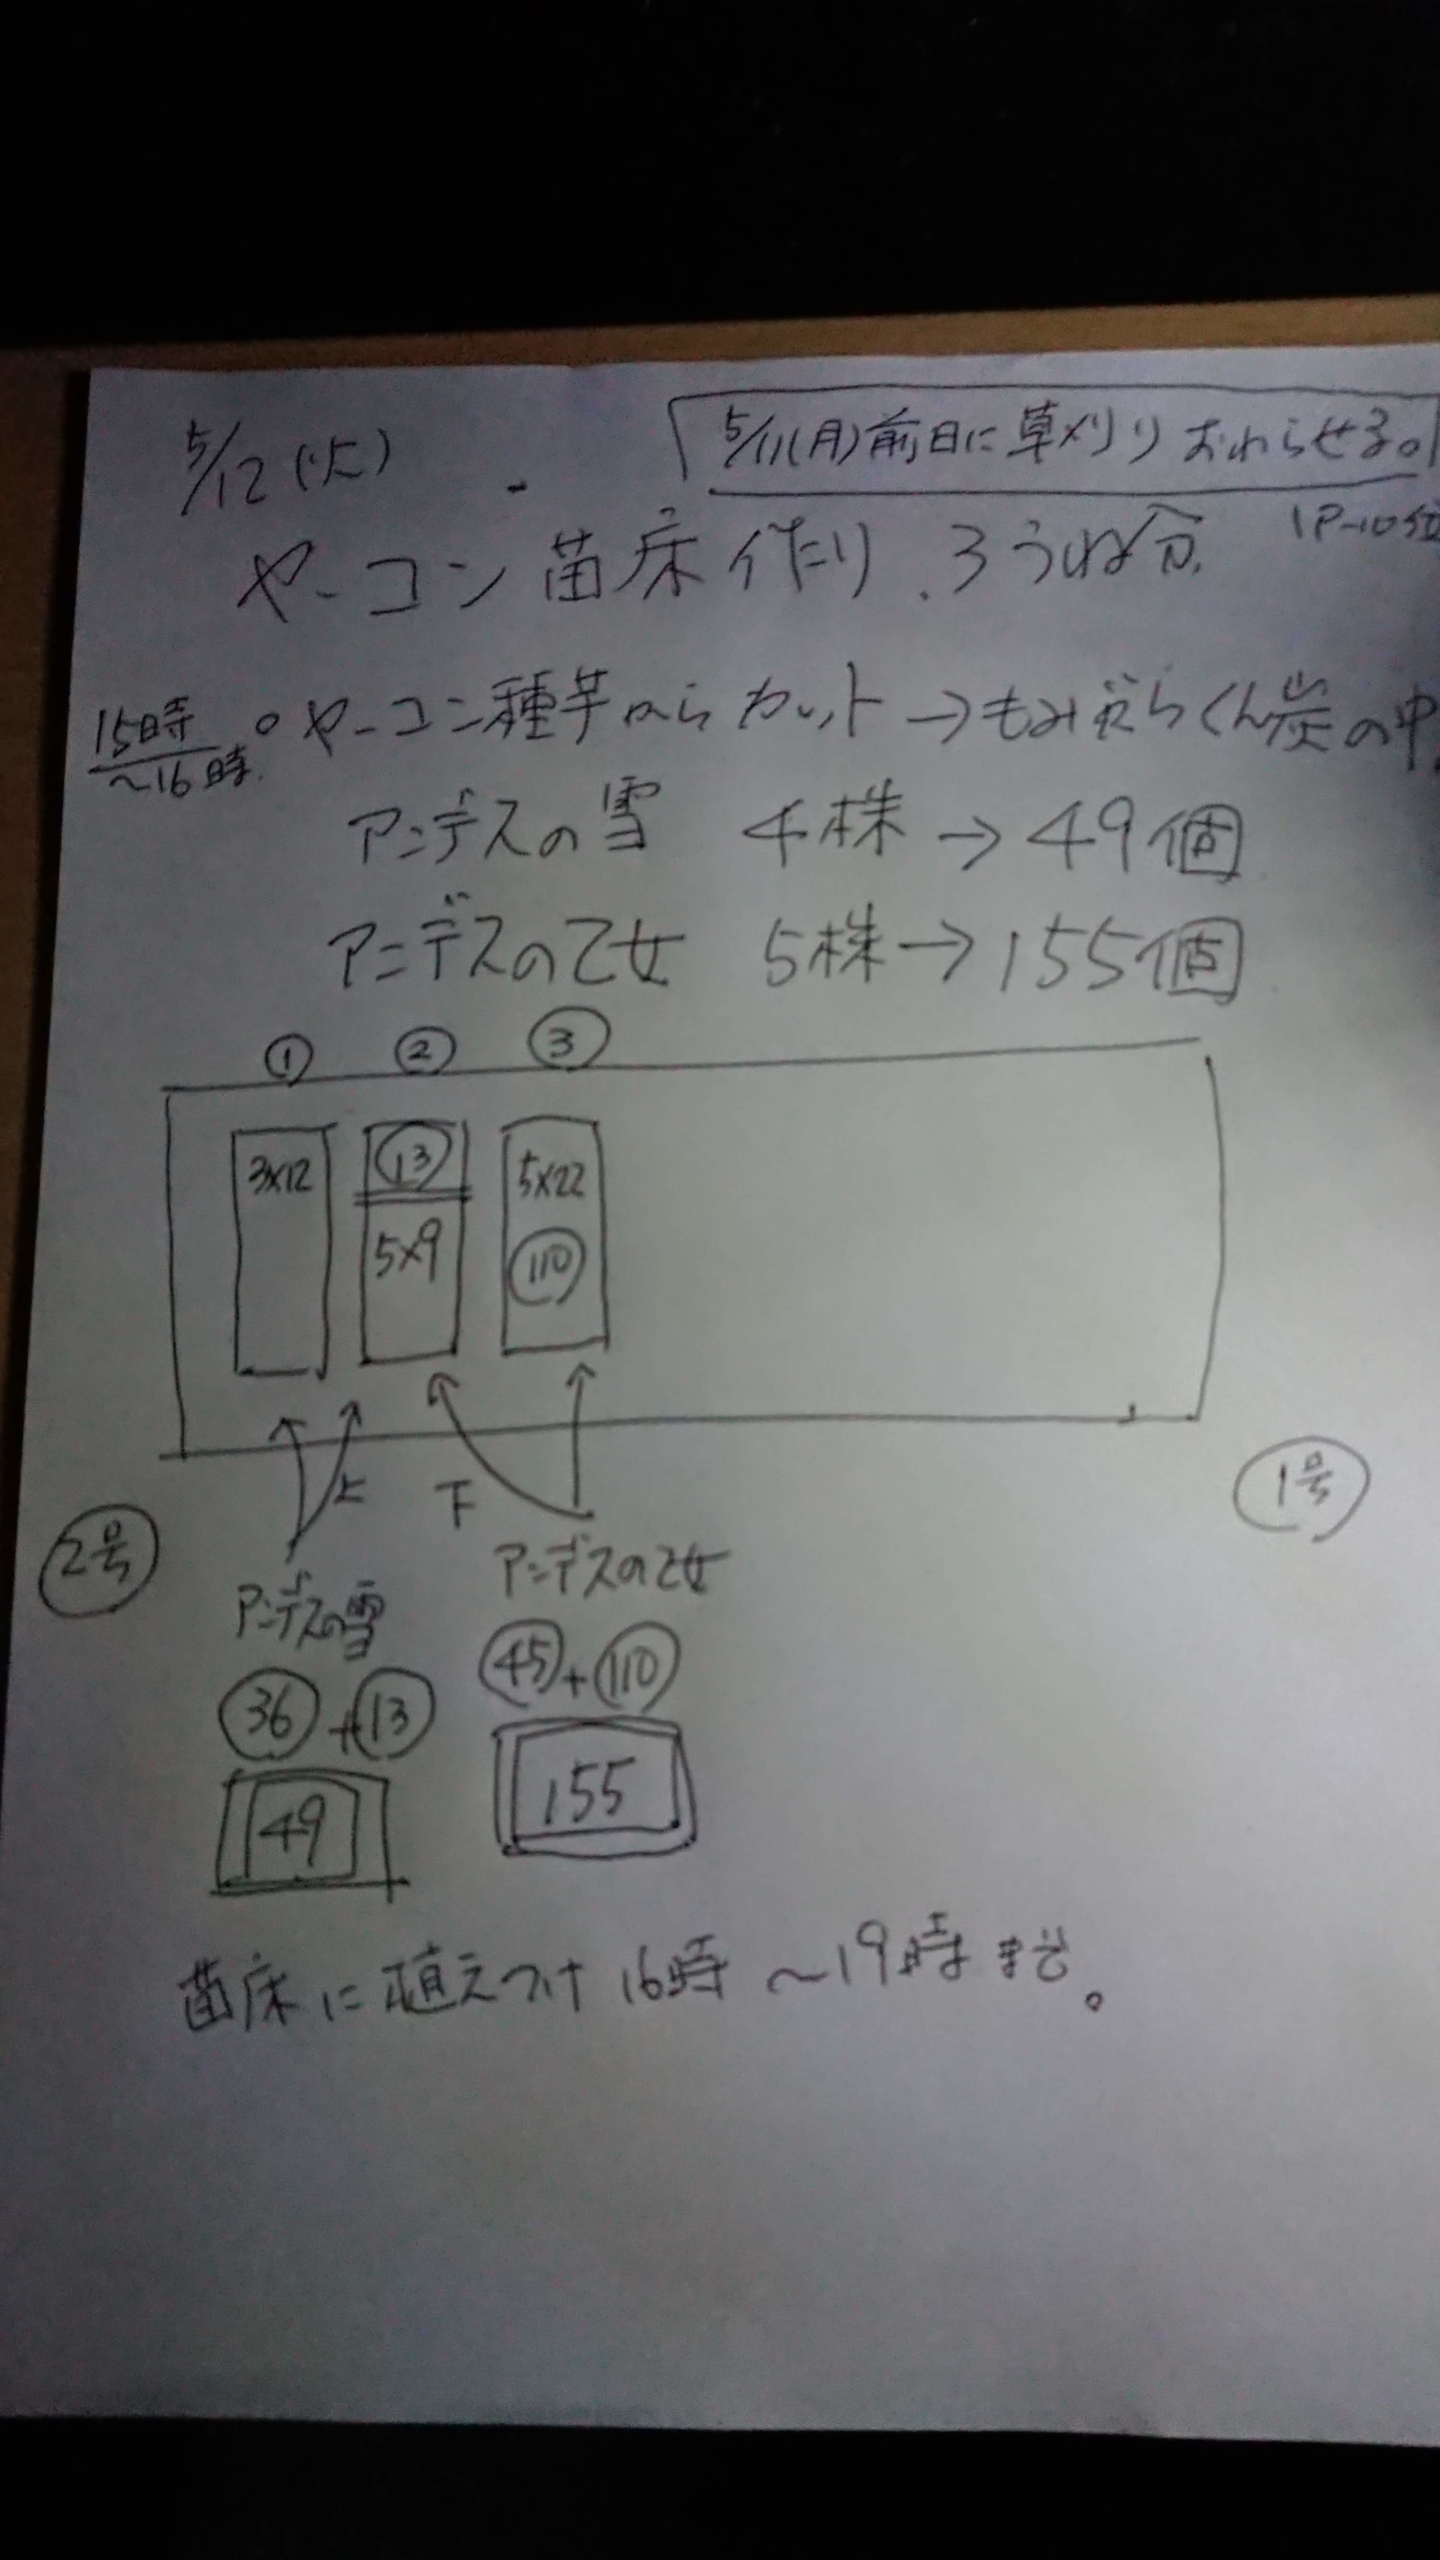 5/12(火)
5/11(月)前日に草刈りおわらせる。
ヤーコン苗床作り. 3うね分.
15時
～16時.
○ヤーコン種芋からカット→もみがらくん炭の中.
アンデスの雪 4株→49個
アンデスの乙女 5株→155個
① ② ③
3×12 ⑬ 5×22
5×9 110
上 下
2号 1号
アンデスの雪 アンデスの乙女
36+13 45+110
49 155
苗床に植えつけ 16時～19時まで。